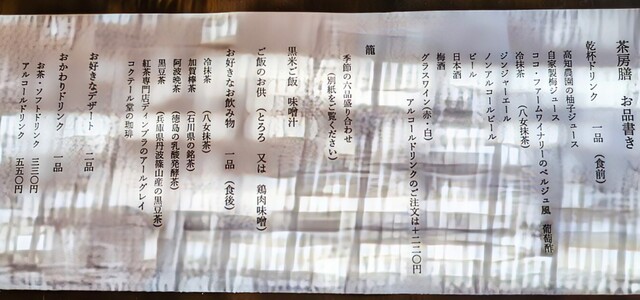 茶房膳 お品書き
乾杯ドリンク 一品 (食前)
高知農園の柚子ジュース
自家製梅ジュース
ココ・ファームワイナリーのベルジュ風 葡萄酢
冷抹茶 (八女抹茶)
ジンジャーエール
ノンアルコールビール
ビール
日本酒
梅酒
グラスワイン(赤・白)
アルコールドリンクのご注文は+二二〇円
籠
季節の六品盛り合わせ
(別紙をご覧ください)
黒米ご飯 味噌汁
ご飯のお供 (とろろ 又は 鶏肉味噌)
お好きなお飲み物 一品 (食後)
冷抹茶 (八女抹茶)
加賀棒茶 (石川県の銘茶)
阿波晩茶 (徳島の乳酸発酵茶)
黒豆茶 (兵庫県丹波篠山産の黒豆茶)
紅茶専門店ディンブラのアールグレイ
コクテール堂の珈琲
お好きなデザート 二品
おかわりドリンク 一品
お茶・ソフトドリンク 三三〇円
アルコールドリンク 五五〇円